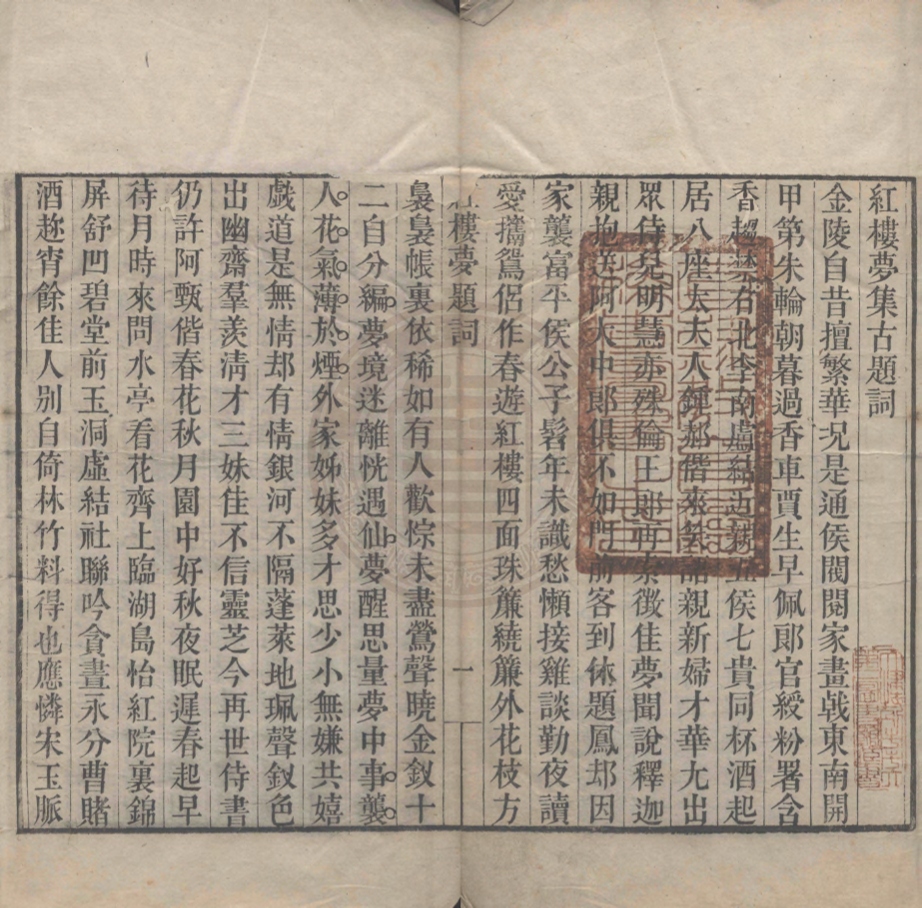 紅樓夢集古題詞
金陵自昔擅繁華況是通侯閥閱家畫戟東南開
甲第朱輪朝暮過香車賈生早佩郎官綬粉署含
香趨禁右北李南盧結近親五侯七貴同杯酒起
居八座太夫人鍾郝偕來娣姒親新婦才華尤出
眾侍兒明慧亦殊倫王郎再索徵佳夢聞說釋迦
親抱送阿大中郎俱不如門前客到休題鳳却因
家襲富平侯公子髫年未識愁懶接雞談勤夜讀
愛攜鴛侶作春遊紅樓四面珠簾繞簾外花枝方
樓夢題詞
一
裊裊帳裏依稀如有人歡悰未盡鶯聲曉金釵十
二自分編夢境迷離恍遇仙夢醒思量夢中事襲
人花氣薄於煙外家姊妹多才思少小無嫌共嬉
戲道是無情却有情銀河不隔蓬萊地珮聲釵色
出幽齋羣羨清才三妹佳不信靈芝今再世侍書
仍許阿甄偕春花秋月園中好秋夜眠遲春起早
待月時來問水亭看花齊上臨湖島怡紅院裏錦
屏舒凹碧堂前玉洞虛結社聯吟貪晝永分曹賭
酒趂宵餘佳人別自倚林竹料得也應憐宋玉脈